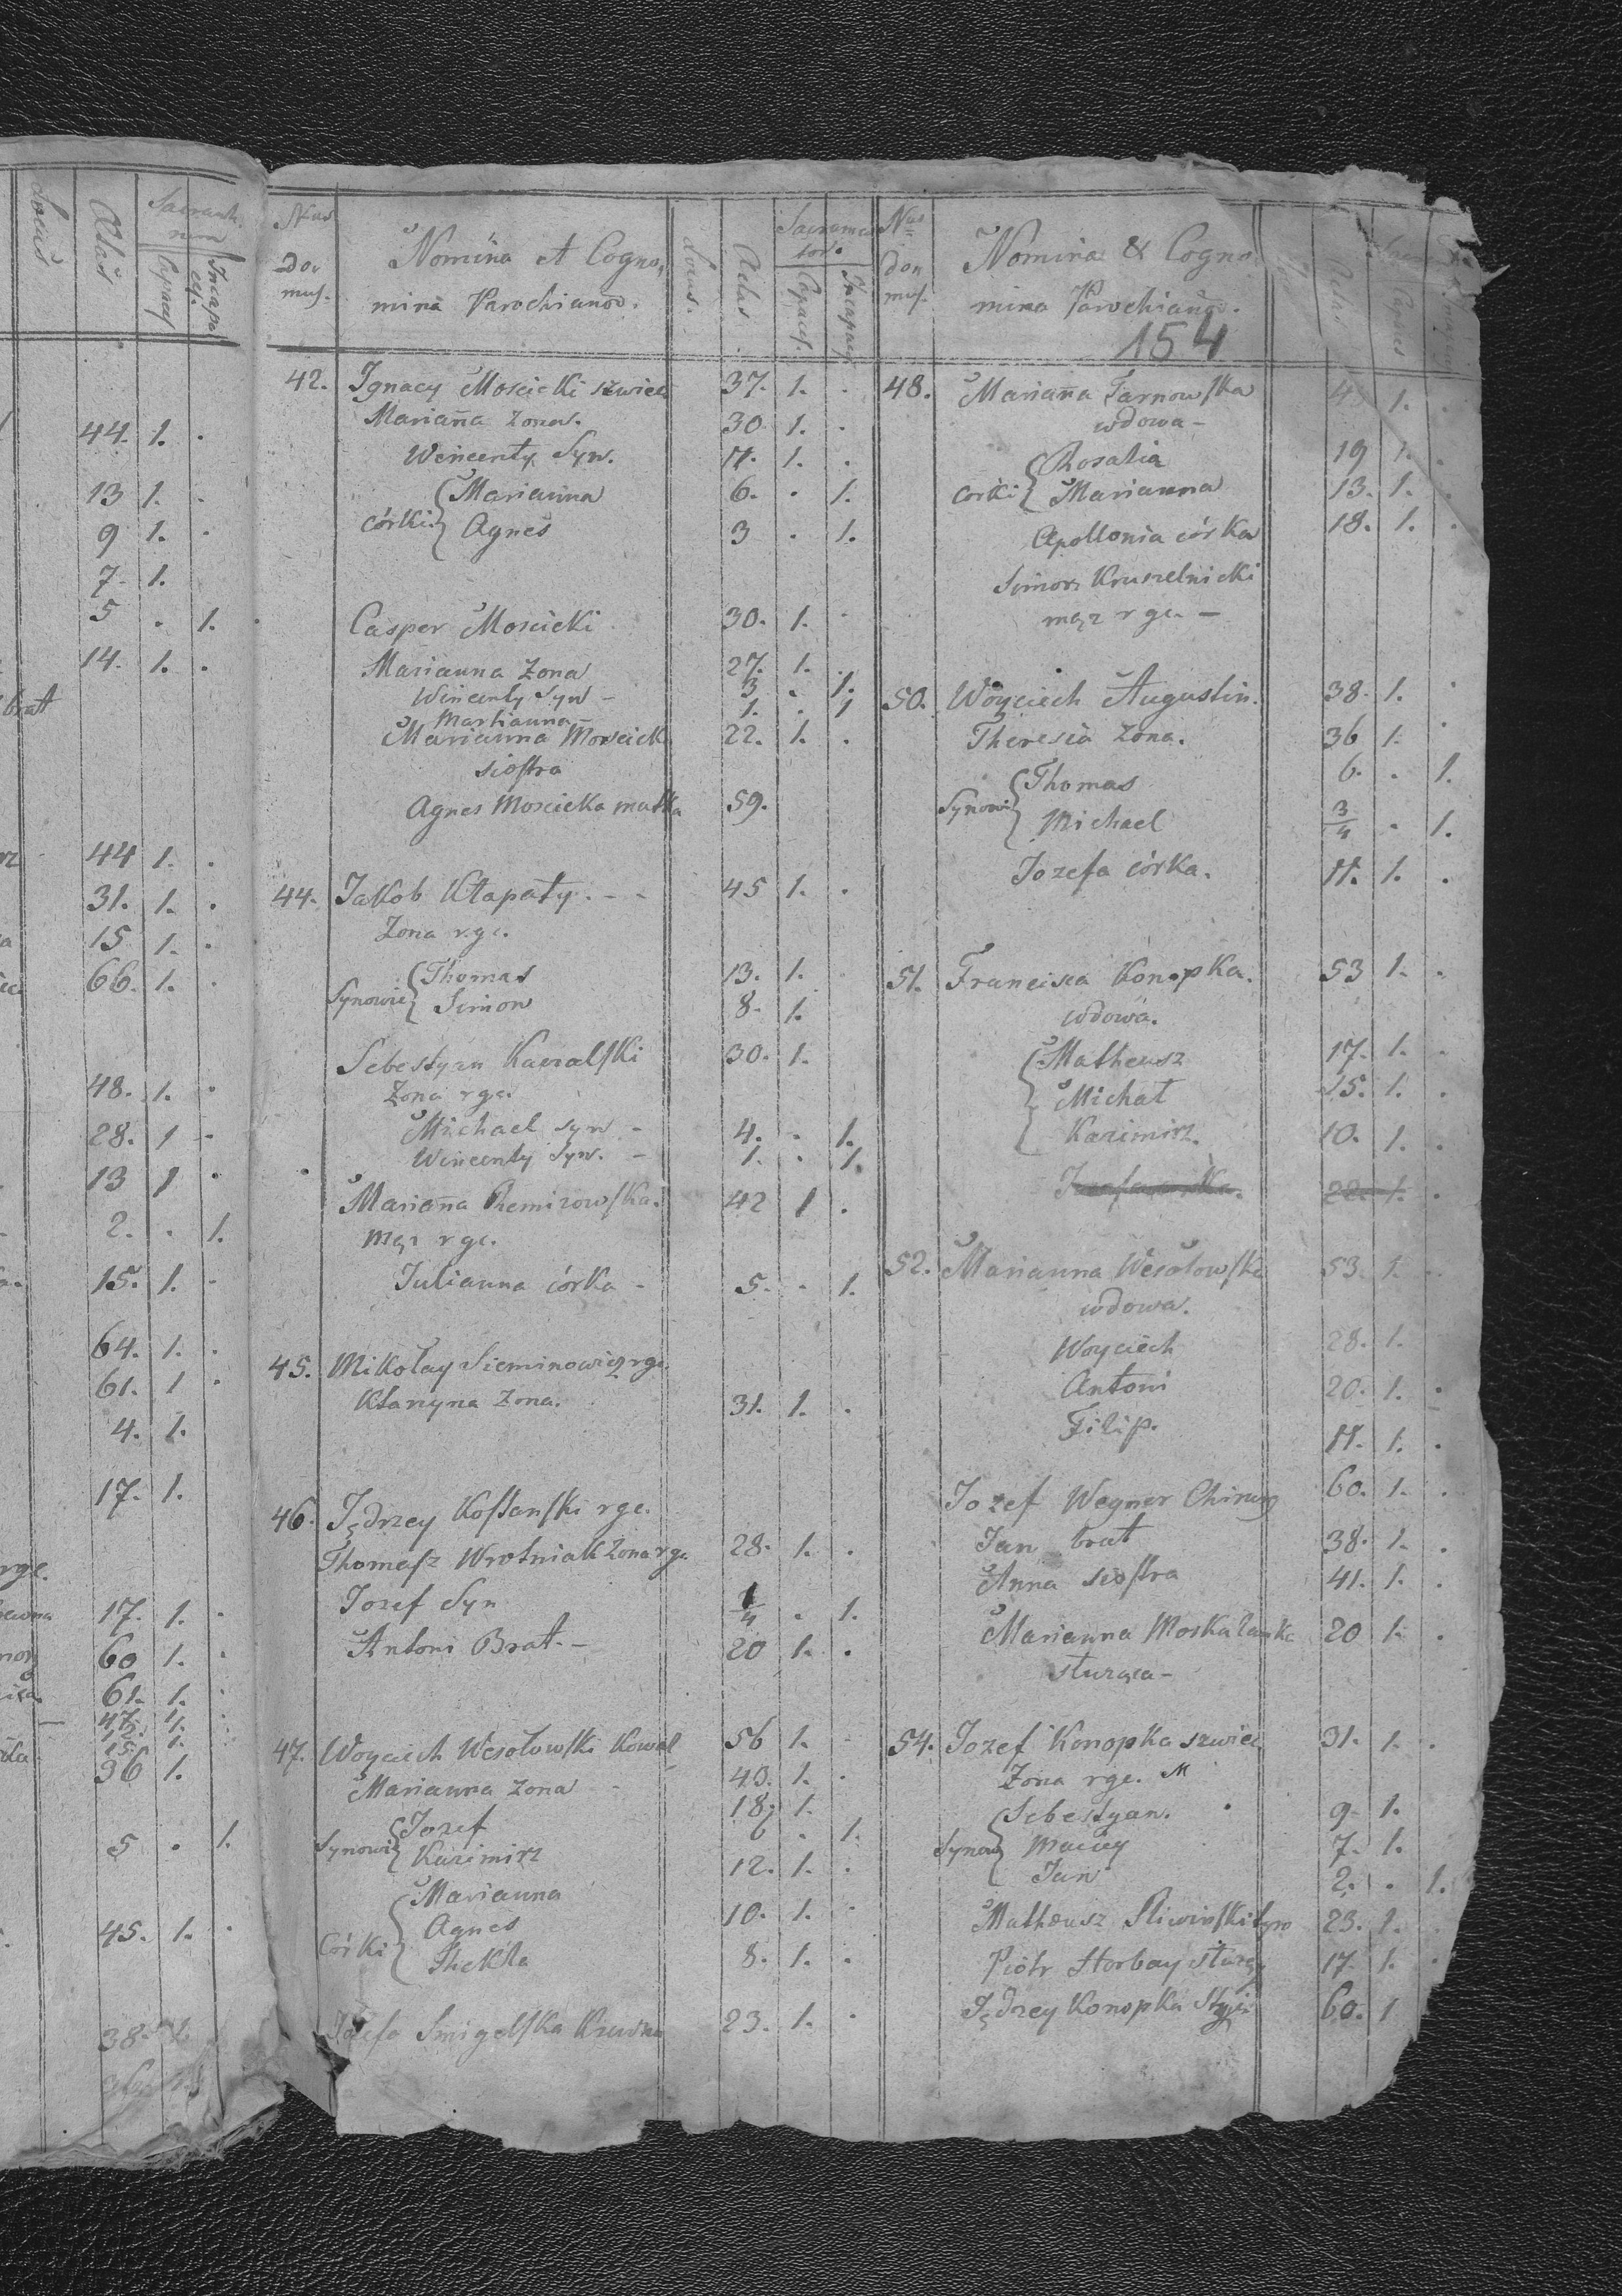 Locus
Ætas
Sacrament.
Capaces
Incapaces
44. 1. .
13 1. .
9 1. .
7. 1.
5 . 1.
14. 1. .
brat
44 1. .
31. 1. .
15 1. .
66. 1. .
48. 1. .
28. 1 .
13 1 .
2. . 1.
15. 1. .
64. 1. .
61. 1 .
4. 1.
17. 1.
rge.
17. 1. .
60 1. .
61. 1. .
47. 1.
15. 1.
36 1.
5 . 1.
45. 1. .
38.
Nrus domus.
Nomina et Cogno,
mina Parochianor.
Locus.
Ætas
Sacramentor.
Capaces.
Incapaces
42. Ignacy Moscicki szwiec 37. 1. .
Mariana Zona. 30 1. .
Wincenty Syn. 11. 1. .
córki { Marianna 6. . 1.
Agnes 3 . 1.
Casper Moscicki 30. 1. .
Marianna Zona 27. 1.
Wincenty Syn - 3 . 1.
Marianna - 1. . 1
Marianna Moscick 22. 1. .
siostra
Agnes Moscicka matka 59.
44. Jakob Kłapaty. - - 45 1. .
Zona rge.
Synowie { Thomas 13. 1. .
Simon 8. 1.
Sebestyan Kawalski 30. 1.
Zona rge.
Michael syn - 4. . 1.
Wincenty Syn. - 1. . 1.
Mariana Premirowska. 42 1 .
Męz rge.
Julianna córka - 5. . 1.
45. Mikołay Sieminowicz rge.
Katarzyna Zona. 31. 1. .
46. Jędrzey Kossanski rge.
Thomasz Wrotniak Zona rge 28. 1. .
Jozef Syn 1/4 . 1.
Antoni Brat. - 20 1. .
47. Woyciech Wesołowski Kowal 56 1. .
Marianna Zona - 43. 1. .
Synowie { Jozef 18. 1.
Kazimirz 6 . 1.
Córki { Marianna 12. 1. .
Agnes 10. 1. .
Thekla 8. 1. .
Jozefa Smigelska Krewna 23. 1. .
Nrus domus.
Nomina & Cogno,
mina Parochianor.
154
Ætas
Capaces
48. Mariana Tarnowska 1. .
wdowa -
corki { Rosalia 19 1. .
Marianna 13. 1. .
Apollonia córka 18. 1. .
Simon Kruszelnicki
męz rge. -
50. Woyciech Augustin. 38. 1. .
Theresia Zona. 36 1. .
Synowie { Thomas 6. . 1.
Michael 3/4 . 1.
Jozefa córka. 11. 1. .
51. Francisca Konopka. 53 1. .
wdowa.
{ Matheusz 17. 1. .
Michał 15. 1. .
Kazimirz. 10. 1. .
Jozefa córka. 22. 1. .
52. Marianna Wesołowska 53. 1. .
wdowa.
Woyciech 28. 1.
Antoni 20. 1. .
Filip. 11. 1. .
Jozef Wegner Chirurg 60. 1. .
Jan brat 38. 1. .
Anna siostra 41. 1. .
Marianna Moskalanka 20 1. .
służąca -
54. Jozef Konopka szwiec 31. 1. .
Zona rge. M
Synow { Sebestyan. 9. 1.
Maciey 7. 1.
Jan 2. . 1.
Matheusz Sliwinski 23. 1. .
Piotr Horbay słuzą 17. 1. .
Jędrzey Konopka 60. 1